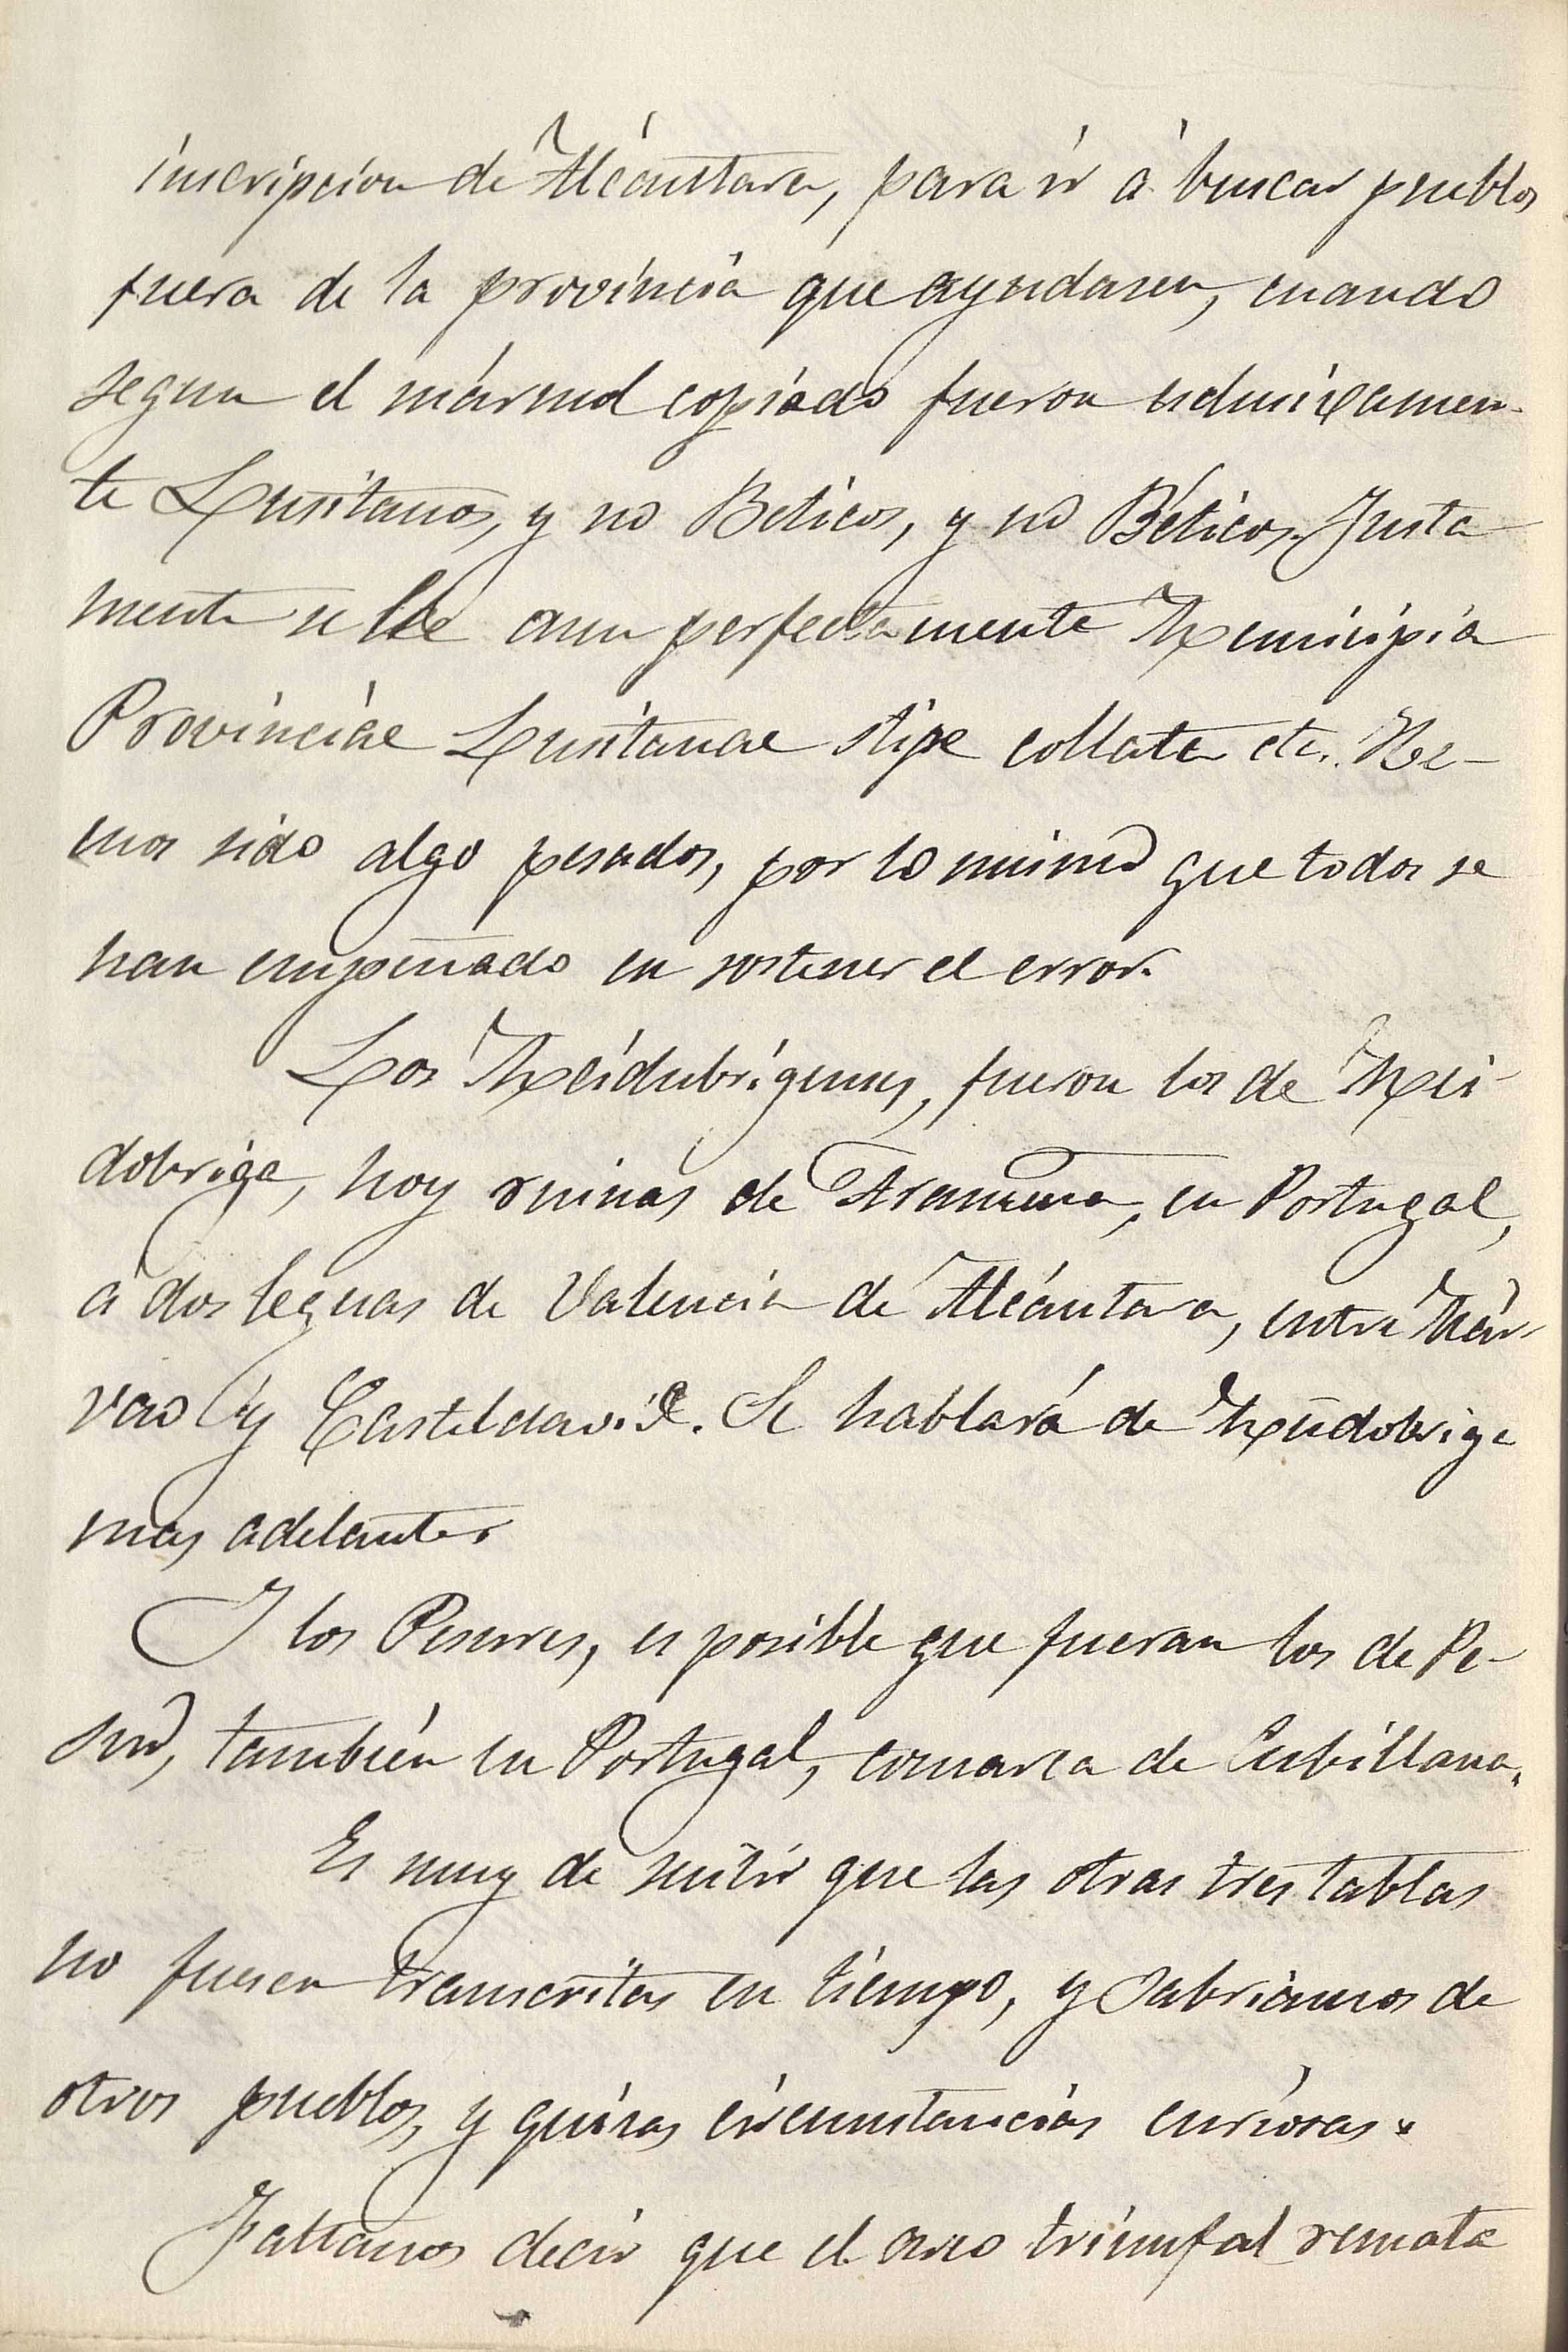 inscripcion de Alcántara, para ir á buscar pueblos
fuera de la provincia que ayudasen, cuando
segun el mármol copiado fueron esclusivamen-
te Lusitanos, y no Beticos, y no Béticos. Justa
mente se lee aun perfectamente Municipia
Provinciae Lusitanae stipe collata etc. He-
mos sido algo pesados, por lo mismo que todos se
han empeñado en sostener el error.
Los Meidubrigenses, fueron los de Mei-
dobriga, hoy ruinas de Aramena, en Portugal,
á dos leguas de Valencia de Alcántara, entre Már-
vao y Casteldavid. Se hablará de Meidobriga
mas adelante.
I los Pesures, es posible que fueran los de Pe-
so, también en Portugal, comarca de Cubillana.
Es muy de sentir que las otras tres tablas
no fuesen transcritas en tiempo, y sabriamos de
otros pueblos, y quizas circunstancias curiosas.
Faltanos decir que el arco triumfal remata